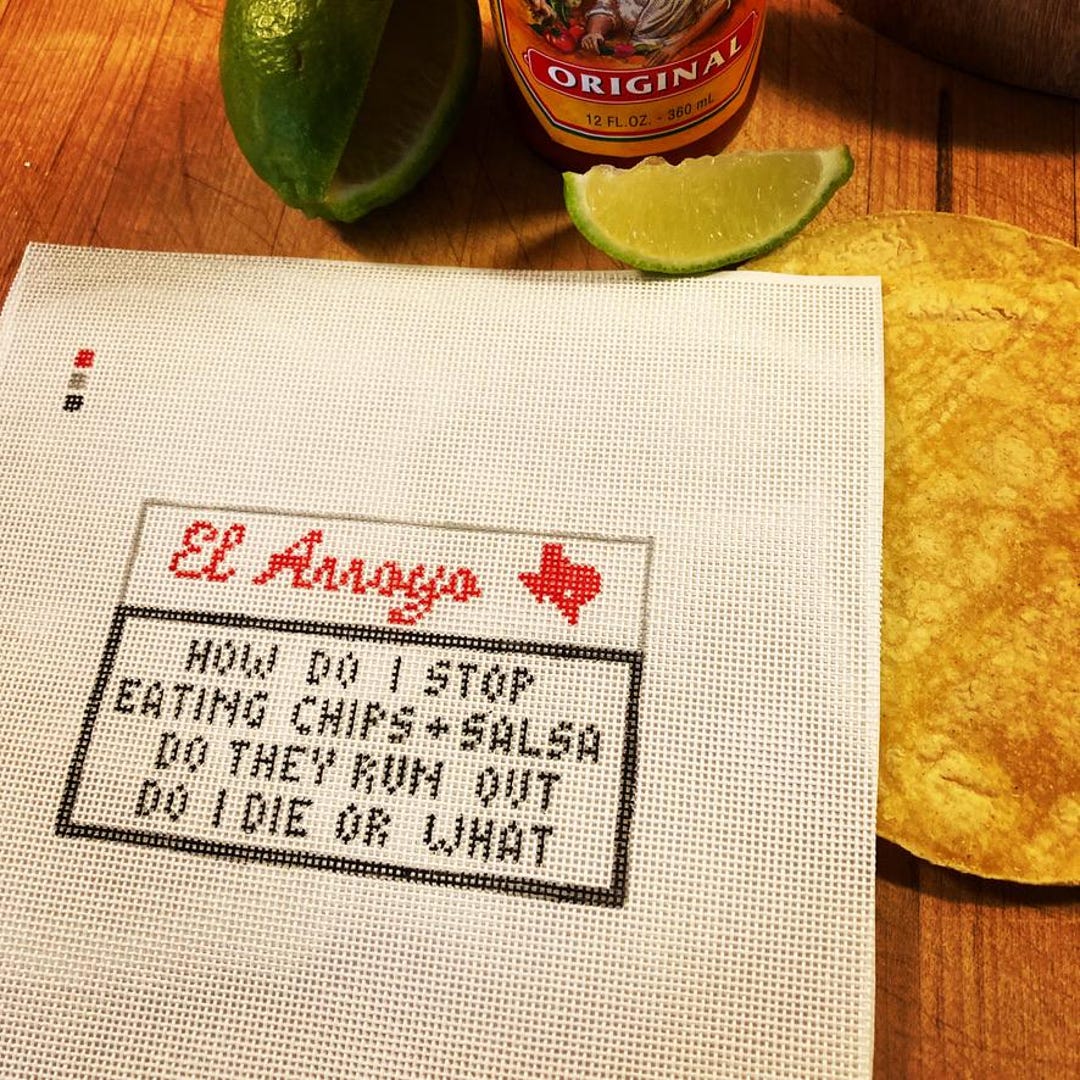 ORIGINAL
12 FL.OZ. - 360 mL
El Arroyo
HOW DO I STOP
EATING CHIPS + SALSA
DO THEY RUN OUT
DO I DIE OR WHAT